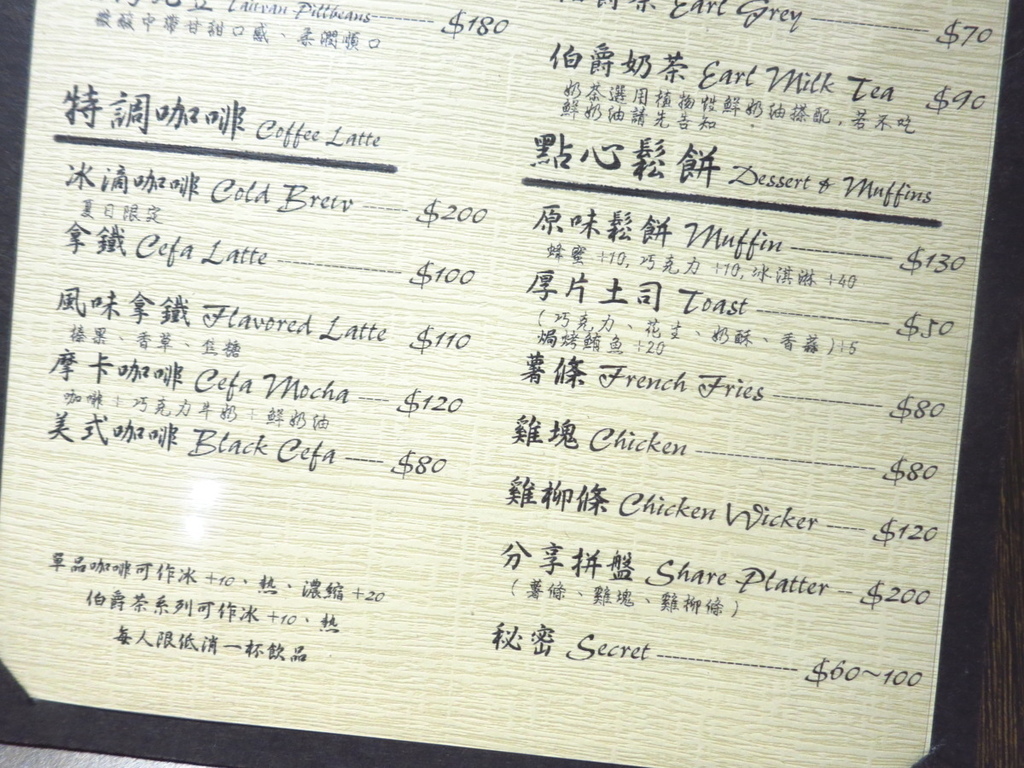 Taiwan Pittbeans $180
微酸中帶甘甜口感、柔潤順口
特調咖啡 Coffee Latte
冰滴咖啡 Cold Brew $200
夏日限定
拿鐵 Cefa Latte $100
風味拿鐵 Flavored Latte $110
榛果、香草、焦糖
摩卡咖啡 Cefa Mocha $120
咖啡+巧克力牛奶+鮮奶油
美式咖啡 Black Cefa $80
單品咖啡可作冰+10、熱、濃縮+20
伯爵茶系列可作冰+10、熱
每人限低消一杯飲品
伯爵茶 Earl Grey $70
伯爵奶茶 Earl Milk Tea $90
奶茶選用植物性鮮奶油搭配,若不吃
鮮奶油請先告知
點心鬆餅 Dessert & Muffins
原味鬆餅 Muffin $130
蜂蜜+10,巧克力+10,冰淇淋+40
厚片土司 Toast $50
(巧克力、花生、奶酥、香蒜)+5
焗烤鮪魚+20
薯條 French Fries $80
雞塊 Chicken $80
雞柳條 Chicken Wicker $120
分享拼盤 Share Platter $200
(薯條、雞塊、雞柳條)
秘密 Secret $60~100